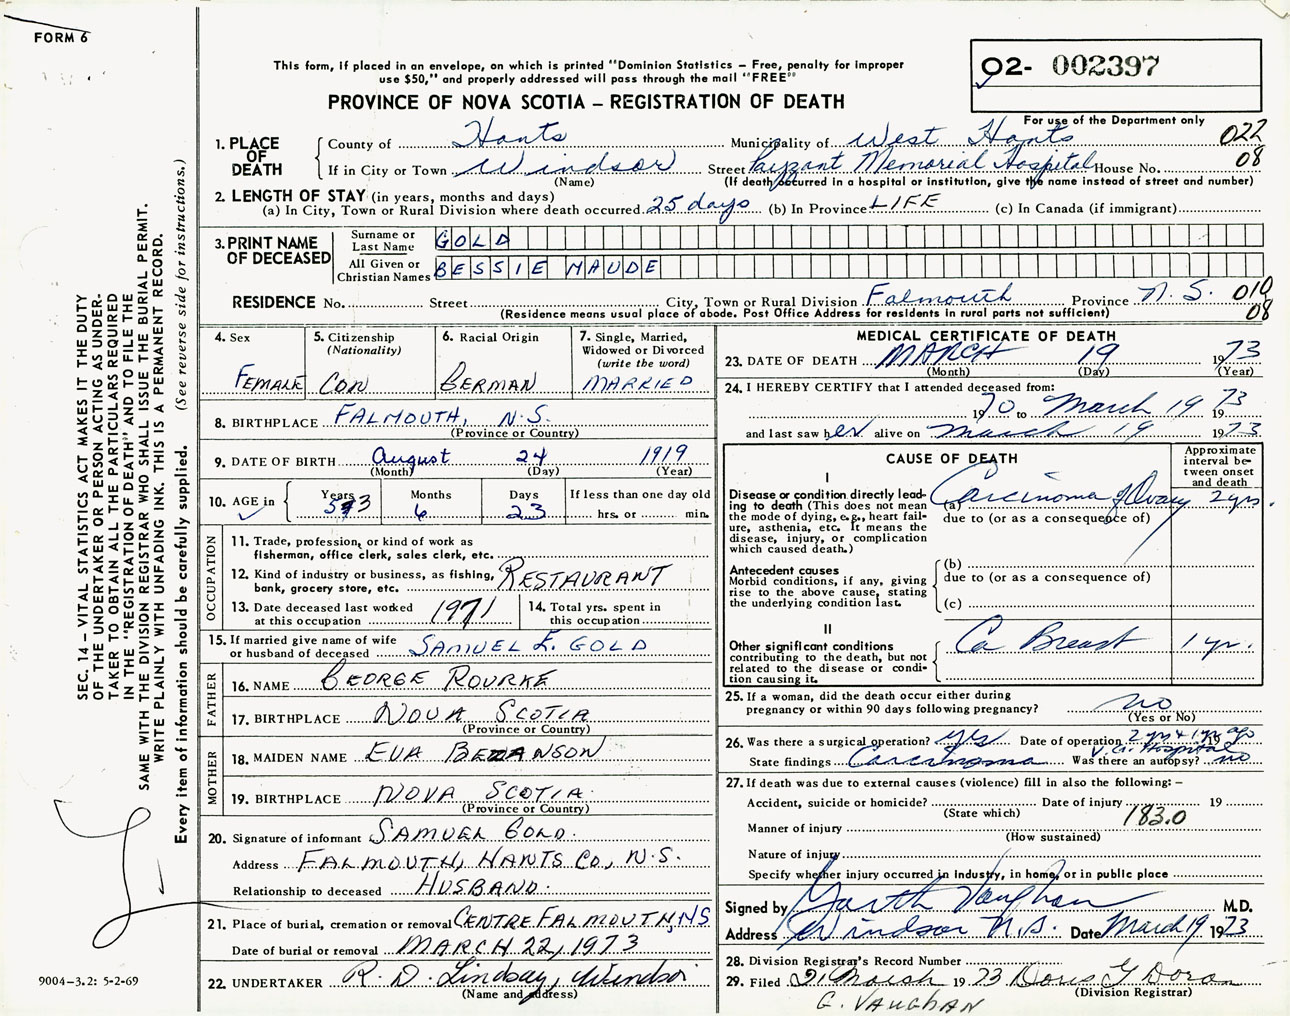 FORM 6
This form, if placed in an envelope, on which is printed "Dominion Statistics — Free, penalty for improper
use $50," and properly addressed will pass through the mail "FREE"
PROVINCE OF NOVA SCOTIA — REGISTRATION OF DEATH
02- 002397
For use of the Department only
022
08
1. PLACE OF DEATH
County of Hants Municipality of West Hants
If in City or Town Windsor Street Payzant Memorial Hospital House No.
(Name) (If death occurred in a hospital or institution, give the name instead of street and number)
2. LENGTH OF STAY (in years, months and days)
(a) In City, Town or Rural Division where death occurred 25 days (b) In Province LIFE (c) In Canada (if immigrant)
3. PRINT NAME OF DECEASED
Surname or Last Name GOLD
All Given or Christian Names BESSIE MAUDE
RESIDENCE No. Street City, Town or Rural Division Falmouth Province N.S. 010
08
(Residence means usual place of abode. Post Office Address for residents in rural parts not sufficient)
4. Sex
FEMALE
5. Citizenship
(Nationality)
CDN
6. Racial Origin
GERMAN
7. Single, Married,
Widowed or Divorced
(write the word)
MARRIED
8. BIRTHPLACE FALMOUTH, N.S.
(Province or Country)
9. DATE OF BIRTH August 24 1919
(Month) (Day) (Year)
10. AGE in
Years Months Days If less than one day old
53 6 23 hrs. or min.
OCCUPATION
11. Trade, profession, or kind of work as
fisherman, office clerk, sales clerk, etc.
12. Kind of industry or business, as fishing,
bank, grocery store, etc. RESTAURANT
13. Date deceased last worked
at this occupation 1971
14. Total yrs. spent in
this occupation
15. If married give name of wife
or husband of deceased SAMUEL E. GOLD
FATHER
16. NAME GEORGE ROURKE
17. BIRTHPLACE NOVA SCOTIA
(Province or Country)
MOTHER
18. MAIDEN NAME EVA BEZANSON
19. BIRTHPLACE NOVA SCOTIA
(Province or Country)
20. Signature of informant SAMUEL GOLD.
Address FALMOUTH, HANTS CO, N.S.
Relationship to deceased HUSBAND.
21. Place of burial, cremation or removal CENTRE FALMOUTH, NS
Date of burial or removal MARCH 22, 1973
22. UNDERTAKER R. D. Lindsay, Windsor
(Name and address)
MEDICAL CERTIFICATE OF DEATH
23. DATE OF DEATH MARCH 19 1973
(Month) (Day) (Year)
24. I HEREBY CERTIFY that I attended deceased from:
1970 to March 19 1973
and last saw her alive on March 19 1973
CAUSE OF DEATH
Approximate
interval be-
tween onset
and death
I
Disease or condition directly lead-
ing to death (This does not mean
the mode of dying, e.g., heart fail-
ure, asthenia, etc. It means the
disease, injury, or complication
which caused death.)
(a) Carcinoma of Ovary 2 yrs.
due to (or as a consequence of)
Antecedent causes
Morbid conditions, if any, giving
rise to the above cause, stating
the underlying condition last.
(b)
due to (or as a consequence of)
(c)
II
Other significant conditions
contributing to the death, but not
related to the disease or condi-
tion causing it.
Ca Breast 1 yr.
25. If a woman, did the death occur either during
pregnancy or within 90 days following pregnancy? no
(Yes or No)
26. Was there a surgical operation? yes Date of operation 2 yr & 1 yr ago 19
V.G. Hospital
State findings Carcinoma Was there an autopsy? no
27. If death was due to external causes (violence) fill in also the following: —
Accident, suicide or homicide? Date of injury 19
(State which)
183.0
Manner of injury
(How sustained)
Nature of injury
Specify whether injury occurred in industry, in home, or in public place
Signed by Garth Vaughan M.D.
Address Windsor N.S. Date March 19 1973
28. Division Registrar's Record Number
29. Filed 21 March 1973 Doris G Dora
(Division Registrar)
G. VAUGHAN
SEC. 14 — VITAL STATISTICS ACT MAKES IT THE DUTY
OF THE UNDERTAKER OR PERSON ACTING AS UNDER-
TAKER TO OBTAIN ALL THE PARTICULARS REQUIRED
IN THE "REGISTRATION OF DEATH" AND TO FILE THE
SAME WITH THE DIVISION REGISTRAR WHO SHALL ISSUE THE BURIAL PERMIT.
WRITE PLAINLY WITH UNFADING INK. THIS IS A PERMANENT RECORD.
Every item of information should be carefully supplied. (See reverse side for instructions.)
9004-3.2: 5-2-69